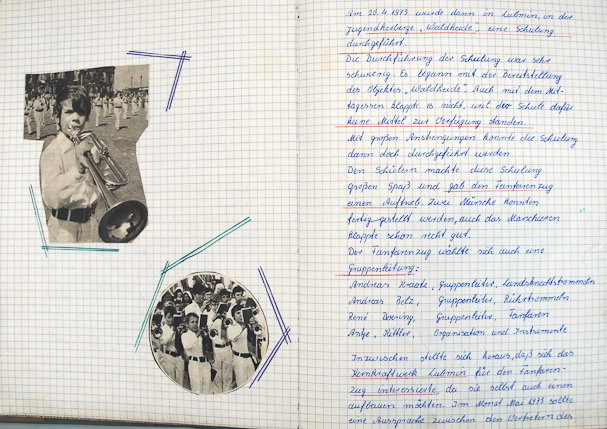 Am 20.4.1973 wurde dann in Lubmin, in der
Jugendherberge „Waldheide", eine Schulung
durchgeführt.
Die Durchführung der Schulung war sehr
schwierig. Es begann mit der Bereitstellung
des Objektes „Waldheide". Auch mit dem Mit-
tagessen klappte es nicht, weil der Schule dafür
keine Mittel zur Verfügung standen.
Mit großen Anstrengungen konnte die Schulung
dann doch durchgeführt werden
Den Schülern machte diese Schulung
großen Spaß und gab den Fanfarenzug
einen Auftrieb. Zwei Märsche konnten
fertig gestellt werden, auch das Marschieren
klappte schon recht gut.
Der Fanfarenzug wählte sich auch eine
Gruppenleitung:
Andreas Kraatz, Gruppenleiter, Landsknechtstrommeln
Andreas Belz, Gruppenleiter, Rührtrommeln
René Doering, Gruppenleiter, Fanfaren
Antje, Hittler, Organisation und Instrumente
Inzwischen stellte sich heraus, daß sich das
Kernkraftwerk Lubmin für den Fanfaren-
zug interessierte, da sie selbst auch einen
aufbauen möchten. Im Monat Mai 1973 sollte
eine Aussprache zwischen den Vertretern des